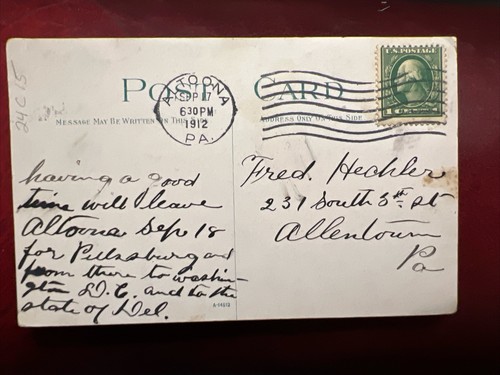 24C15
POST CARD
MESSAGE MAY BE WRITTEN ON THIS SIDE
ADDRESS ONLY ON THIS SIDE
ALTOONA
SEP 17
630 PM
1912
PA.
U.S. POSTAGE
having a good
time will leave
Altoona Sep 18
for Pittsburg and
from there to washin-
gton D.C. and to the
state of Del.
Fred. Hechler
231 South 5th St
Allentown
Pa